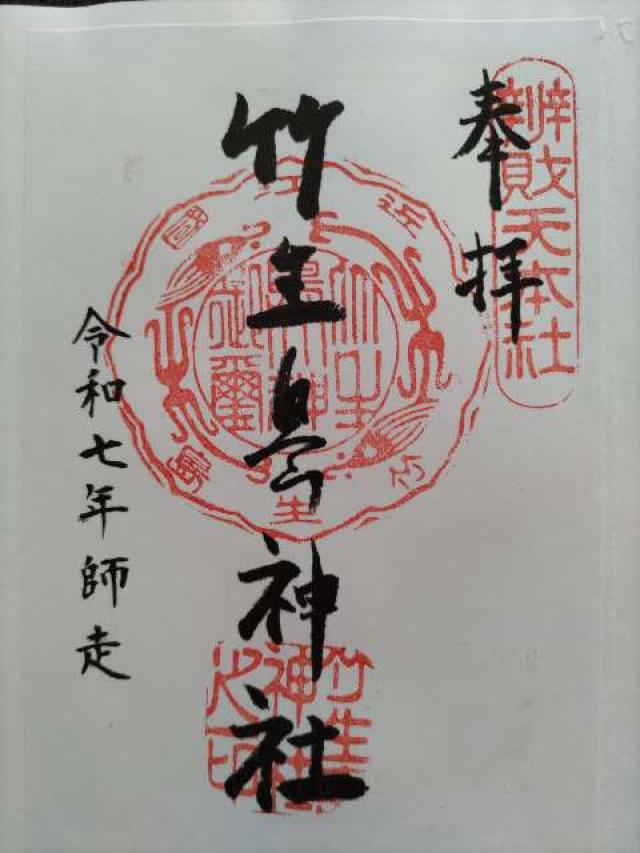 辨財天本社
奉拝
竹生島神社
令和七年師走
近江國
竹生島
竹生島神社之印